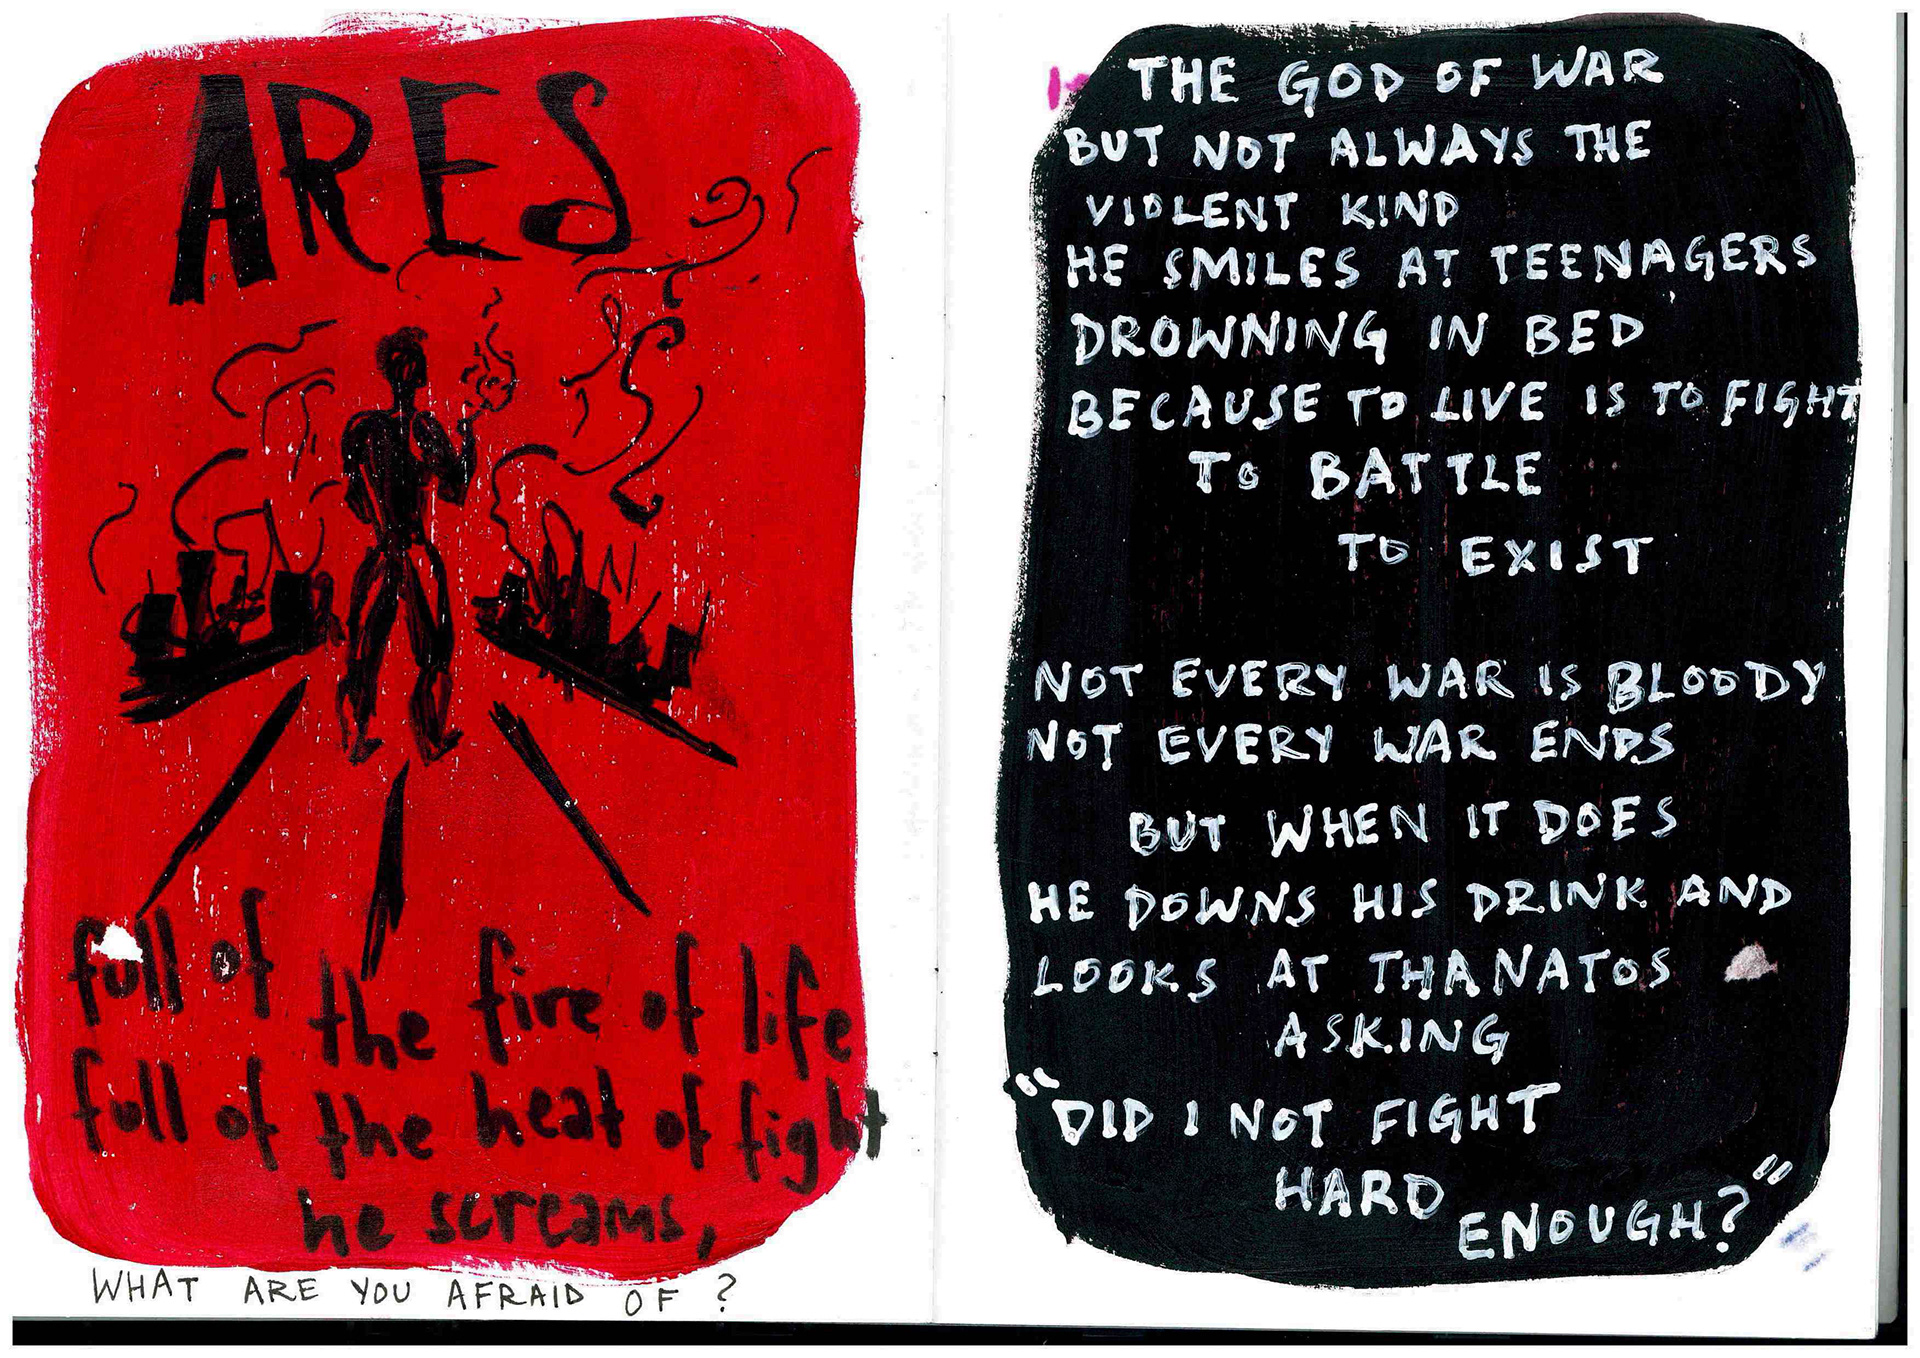 ARES
full of the fire of life
full of the heat of fight
he screams,
WHAT ARE YOU AFRAID OF ?
THE GOD OF WAR
BUT NOT ALWAYS THE
VIOLENT KIND
HE SMILES AT TEENAGERS
DROWNING IN BED
BECAUSE TO LIVE IS TO FIGHT
TO BATTLE
TO EXIST
NOT EVERY WAR IS BLOODY
NOT EVERY WAR ENDS
BUT WHEN IT DOES
HE DOWNS HIS DRINK AND
LOOKS AT THANATOS
ASKING
"DID I NOT FIGHT
HARD
ENOUGH?"